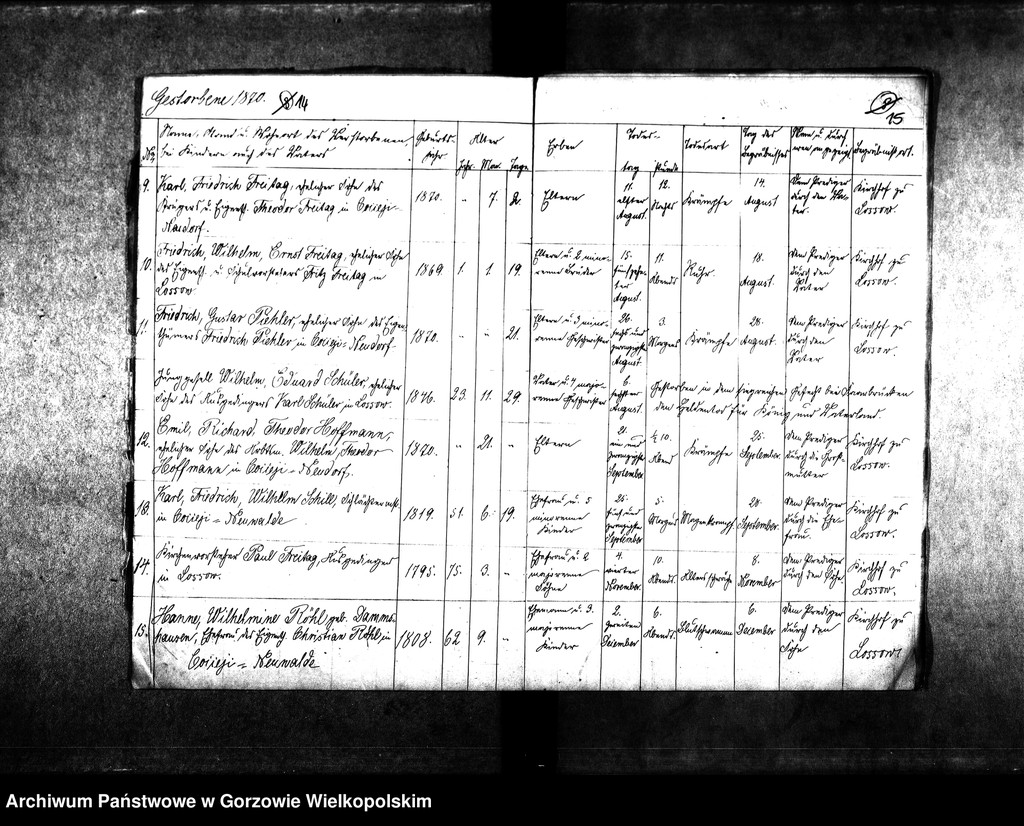 Gestorbene 1870. 14
15
No
Name, Stand u. Wohnort des Verstorbenen,
bei Kindern auch des Vaters
Geburts-
Jahr
Alter
Jahr. Mon. Tage.
Erben
Todes-
tag Stunde
Todesart
Tag des
Begräbnisses
Wem u. durch
wen angezeigt
Begräbnisort.
9. Karl, Friedrich Freitag, ehelicher Sohn des
Krügers u. Eigenth. Theodor Freitag in Cocceji-
Neudorf.
1870. " 7. 2.
Eltern
11.
elften
August.
12.
Nachts
Krämpfe
14.
August
Dem Prediger
durch den Va-
ter.
Kirchhof zu
Lossow.
10. Friedrich, Wilhelm, Ernst Freitag, ehelicher Sohn
des Eigenth. u. Schulvorstehers Fritz Freitag in
Lossow
1869. 1. 1. 19.
Eltern u. 2 mino-
renne Brüder
15.
fünfzehn-
ter
August.
11.
Abends
Ruhr.
18.
August.
Dem Prediger
durch den
Vater
Kirchhof zu
Lossow.
11. Friedrich, Gustav Piehler, ehelicher Sohn des Eigen-
thümers Friedrich Piehler in Cocceji-Neudorf
1870. " " 21.
Eltern u. 3 mino-
renne Geschwister
26.
sechs und
zwanzigste
August
3.
Morgens
Krämpfe
28.
August.
Dem Prediger
durch den
Vater
Kirchhof zu
Lossow.
Junggesell Wilhelm, Eduard Schüler, ehelicher
Sohn des Ausgedingers Karl Schüler in Lossow.
1846. 23. 11. 29.
Vater u. 4 majo-
renne Geschwister
6.
sechsten
August.
Gestorben in dem siegreichen Gefecht bei Saarbrücken
den Heldentod für König und Vaterland
12. Emil, Richard, Theodor Hoffmann,
ehelicher Sohn des Wilhelm, Theodor
Hoffmann, in Cocceji-Neudorf,
1870. " 21. "
Eltern
21.
ein und
zwanzigste
September
½ 10.
Abend
Krämpfe
25.
September.
Dem Prediger
durch die Groß-
mutter
Kirchhof zu
Lossow.
13. Karl, Friedrich, Wilhelm Schill, Schlächtermst.
in Cocceji-Neuwalde
1819. 51. 6. 19.
Ehefrau u. 5
minorenne
Kinder
25.
fünf und
zwanzigste
September
5.
Morgens
Magenkrampf.
28.
September.
Dem Prediger
durch die Ehe-
frau.
Kirchhof zu
Lossow.
14. Kirchenvorsteher Paul Freitag, Ausgedinger
in Lossow.
1795. 75. 3. "
Ehefrau u. 2
majorenne
Söhne
4.
vierter
November.
10.
Abends.
Altersschwäche
8.
November
Dem Prediger
durch den Sohn.
Kirchhof zu
Lossow.
15. Hanne, Wilhelmine Röhl geb. Damms-
hausen, Ehefrau des Eigenth. Christian Röhl, in
Cocceji-Neuwalde
1808. 62 9. "
Ehemann u. 3.
majorenne
Kinder
2.
zweiten
Dezember
6.
Abends.
6.
Dezember
Dem Prediger
durch den
Sohn
Kirchhof zu
Lossow.
Archiwum Państwowe w Gorzowie Wielkopolskim